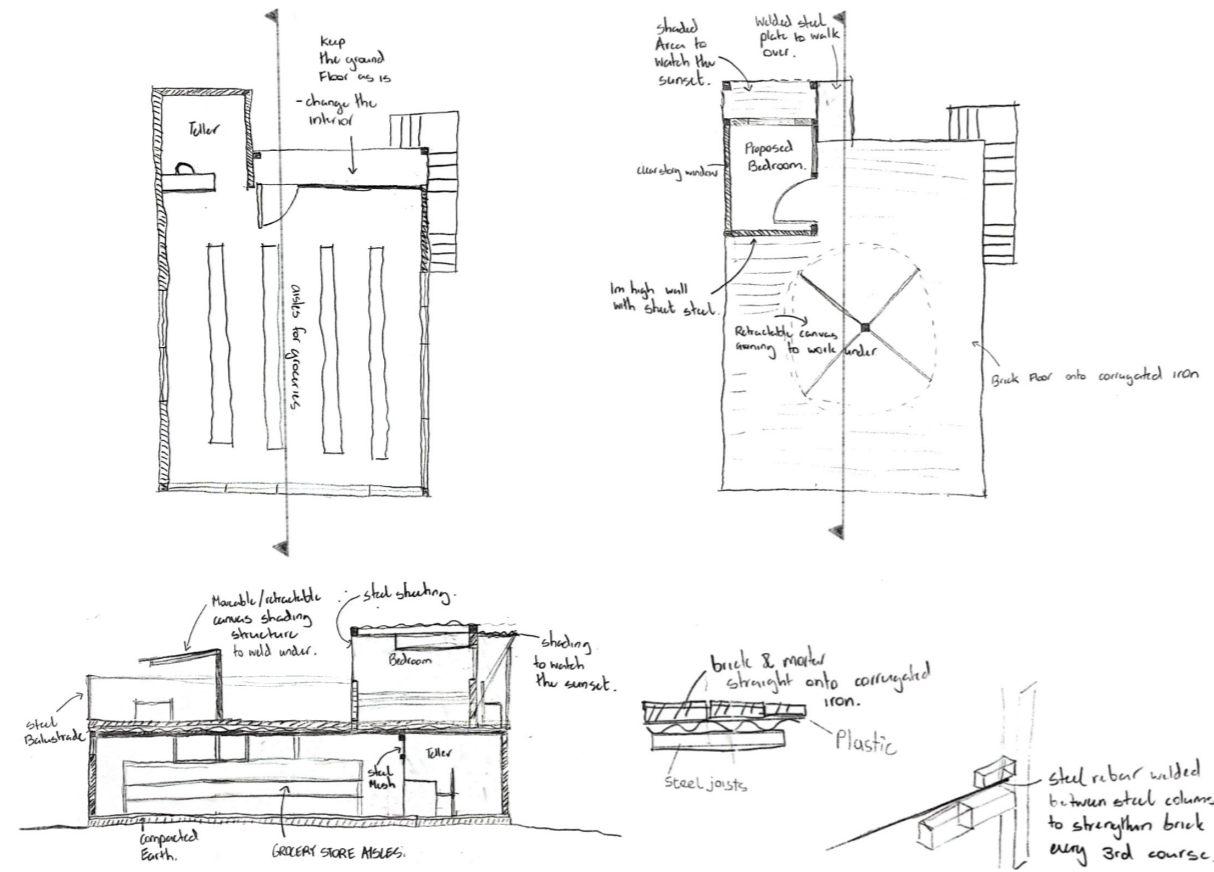 Keep
the ground
Floor as is
- change the
interior
Teller
aisles for groceries
shaded
Area to
watch the
sunset.
Welded steel
plate to walk
over.
Proposed
Bedroom.
clearstory window
1m high wall
with sheet steel.
Retractable canvas
awning to work under
Brick Floor onto corrugated iron
Moveable/retractable
canvas shading
structure
to weld under.
steel sheeting.
Bedroom
shading
to watch
the sunset.
steel
Balustrade
Steel
Mesh
Teller
compacted
Earth.
GROCERY STORE AISLES.
brick & mortar
straight onto corrugated
iron.
Plastic
steel joists
steel rebar welded
between steel columns
to strengthen brick
every 3rd course.